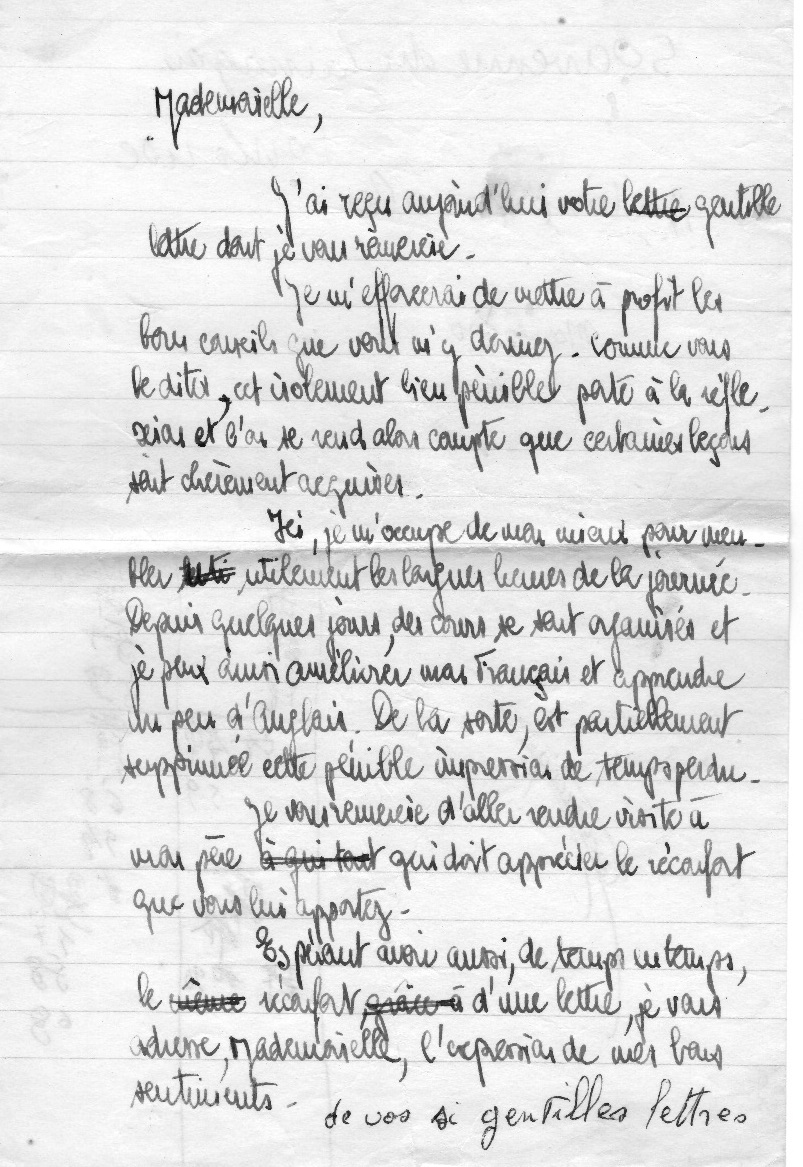 Mademoiselle,
J'ai reçu aujourd'hui votre lettre gentille
lettre dont je vous remercie.
Je m'efforcerai de mettre à profit les
bons conseils que vous m'y donnez. Comme vous
le dites, cet isolement bien pénible porte à la réfle-
xion et l'on se rend alors compte que certaines leçons
sont chèrement acquises.
Ici, je m'occupe de mon mieux pour meu-
bler utilement les longues heures de la journée.
Depuis quelques jours, des cours se sont organisés et
je peux ainsi améliorer mon Français et apprendre
un peu d'Anglais. De la sorte, est partiellement
supprimée cette pénible impression de temps perdu.
Je vous remercie d'aller rendre visite à
mon père à qui tout qui doit apprécier le réconfort
que vous lui apportez.
Espérant avoir aussi, de temps en temps,
le même réconfort grâce à d'une lettre, je vous
adresse, Mademoiselle, l'expression de mes bons
sentiments.
de vos si gentilles lettres